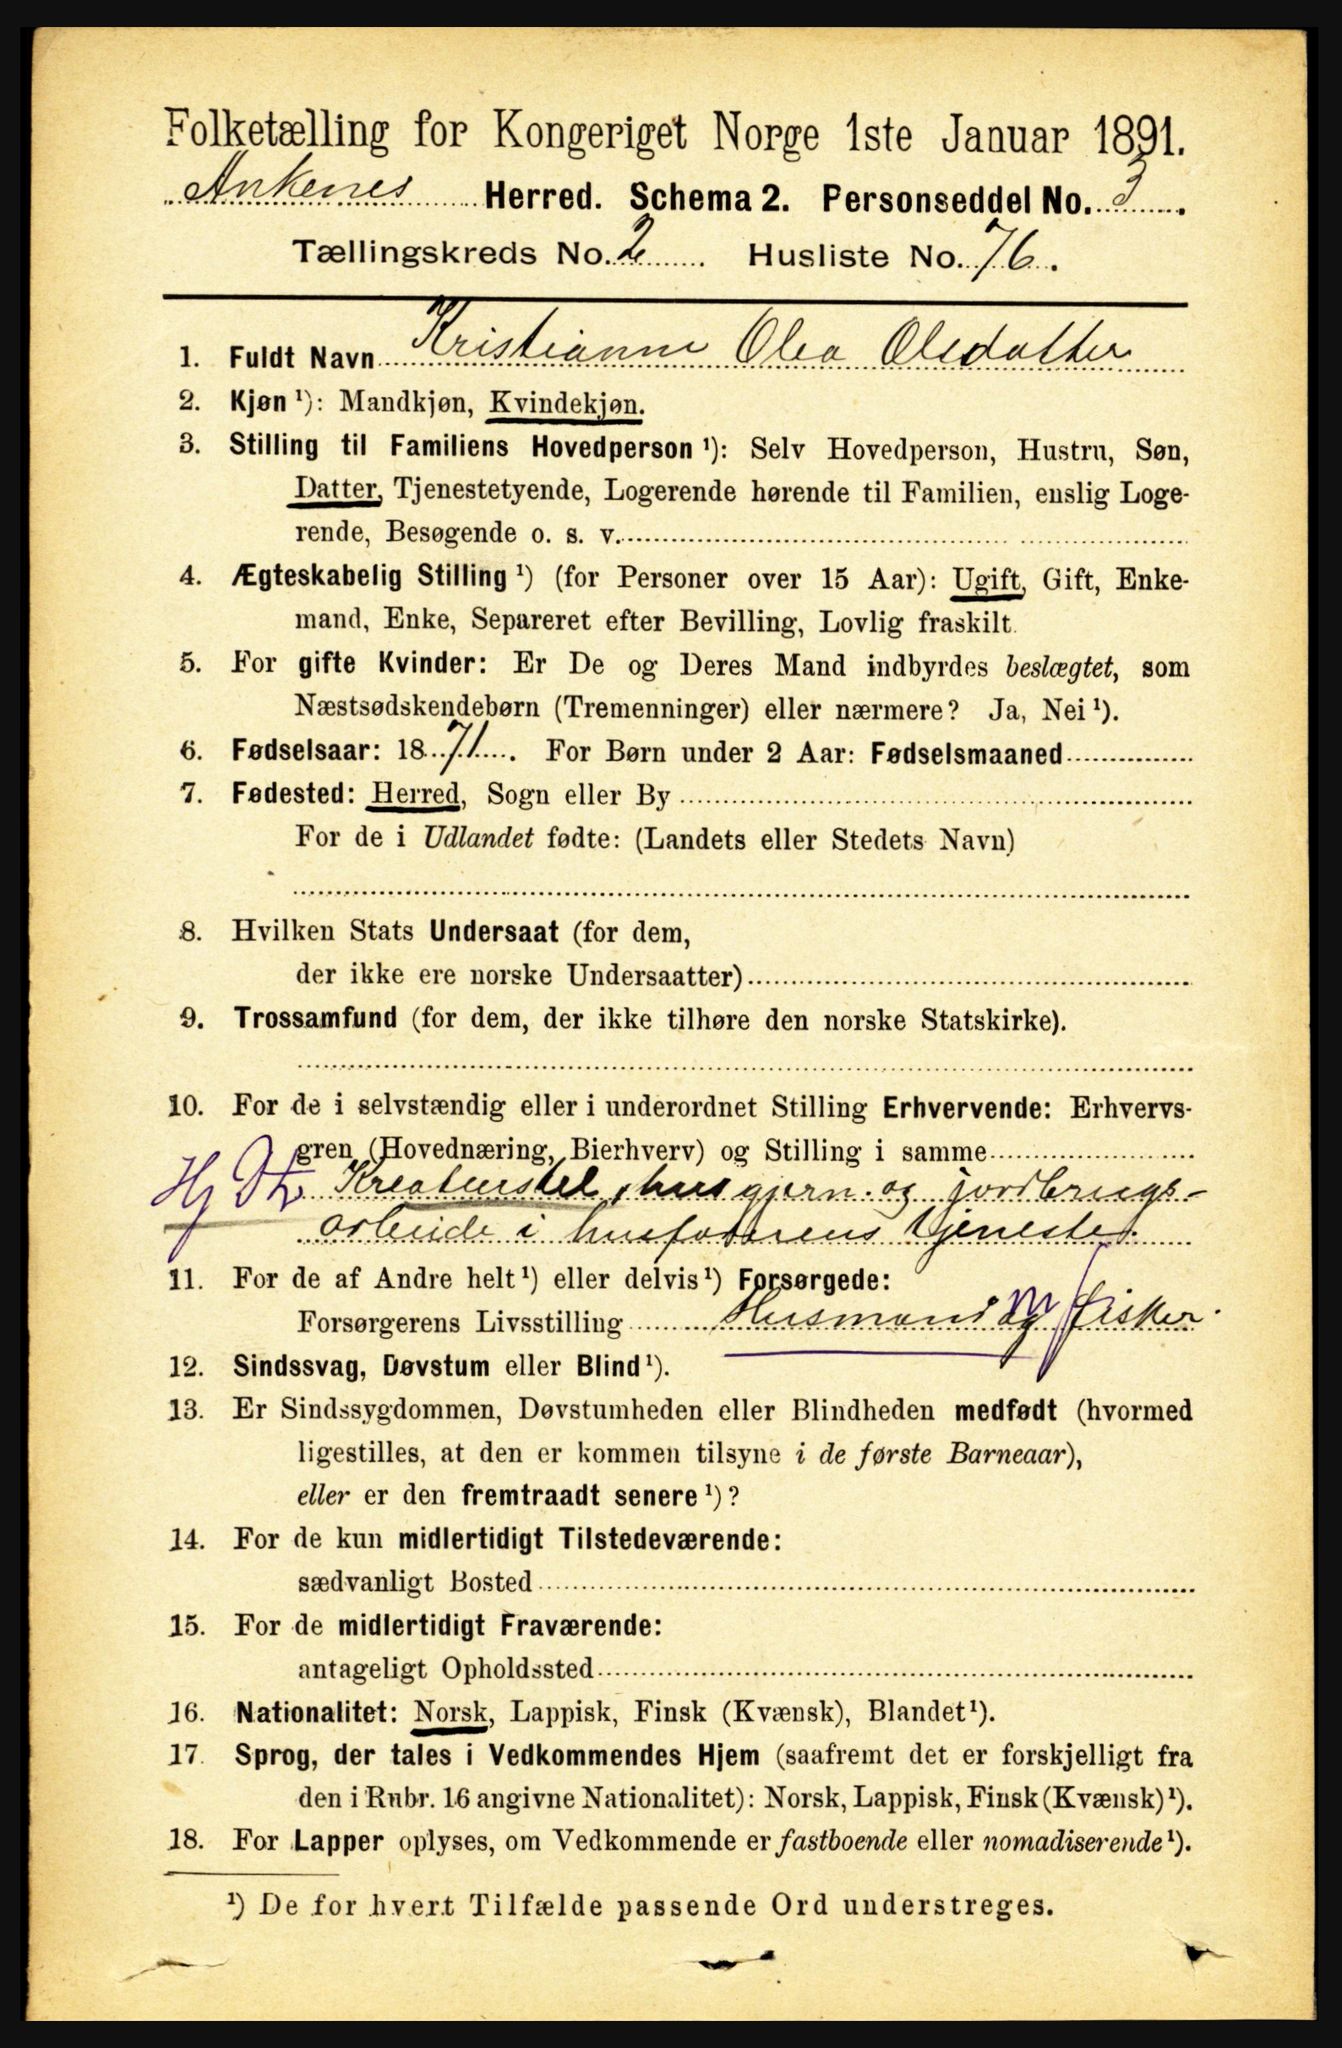 Folketælling for Kongeriget Norge 1ste Januar 1891.
Ankenes Herred. Schema 2. Personseddel No. 3.
Tællingskreds No. 2 Husliste No. 76.
1. Fuldt Navn Kristianne Olea Olsdatter
2. Kjøn ¹): Mandkjøn, Kvindekjøn.
3. Stilling til Familiens Hovedperson ¹): Selv Hovedperson, Hustru, Søn,
Datter, Tjenestetyende, Logerende hørende til Familien, enslig Loge-
rende, Besøgende o. s. v.
4. Ægteskabelig Stilling ¹) (for Personer over 15 Aar): Ugift, Gift, Enke-
mand, Enke, Separeret efter Bevilling, Lovlig fraskilt.
5. For gifte Kvinder: Er De og Deres Mand indbyrdes beslægtet, som
Næstsødskendebørn (Tremenninger) eller nærmere? Ja, Nei ¹).
6. Fødselsaar: 1871. For Børn under 2 Aar: Fødselsmaaned
7. Fødested: Herred, Sogn eller By
For de i Udlandet fødte: (Landets eller Stedets Navn)
8. Hvilken Stats Undersaat (for dem,
der ikke ere norske Undersaatter)
9. Trossamfund (for dem, der ikke tilhøre den norske Statskirke).
10. For de i selvstændig eller i underordnet Stilling Erhvervende: Erhvervs-
gren (Hovednæring, Bierhverv) og Stilling i samme
Kreaturstel, husgjern. og jordbrugs-
arbeide i husfaderens tjeneste.
11. For de af Andre helt ¹) eller delvis ¹) Forsørgede:
Forsørgerens Livsstilling Husmand og fisker.
12. Sindssvag, Døvstum eller Blind ¹).
13. Er Sindssygdommen, Døvstumheden eller Blindheden medfødt (hvormed
ligestilles, at den er kommen tilsyne i de første Barneaar),
eller er den fremtraadt senere ¹)?
14. For de kun midlertidigt Tilstedeværende:
sædvanligt Bosted
15. For de midlertidigt Fraværende:
antageligt Opholdssted
16. Nationalitet: Norsk, Lappisk, Finsk (Kvænsk), Blandet ¹).
17. Sprog, der tales i Vedkommendes Hjem (saafremt det er forskjelligt fra
den i Rubr. 16 angivne Nationalitet): Norsk, Lappisk, Finsk (Kvænsk) ¹).
18. For Lapper oplyses, om Vedkommende er fastboende eller nomadiserende ¹).
¹) De for hvert Tilfælde passende Ord understreges.